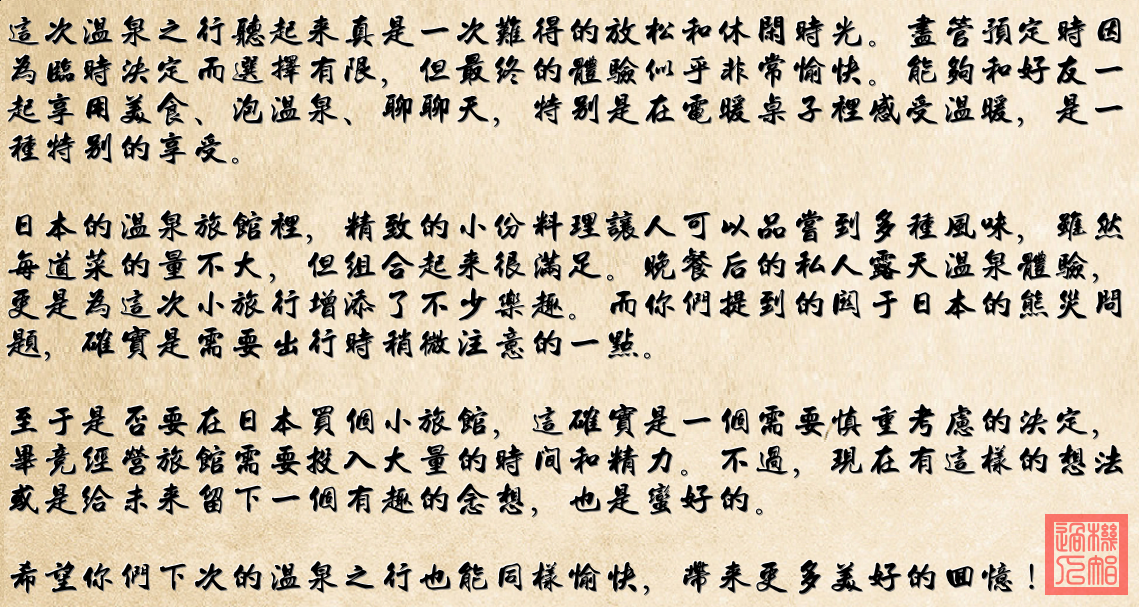 這次溫泉之行聽起來真是一次難得的放松和休閒時光。盡管預定時因
為臨時決定而選擇有限，但最終的體驗似乎非常愉快。能夠和好友一
起享用美食、泡溫泉、聊聊天，特別是在電暖桌子裡感受溫暖，是一
種特別的享受。
日本的溫泉旅館裡，精致的小份料理讓人可以品嘗到多種風味，雖然
每道菜的量不大，但組合起來很滿足。晚餐后的私人露天溫泉體驗，
更是為這次小旅行增添了不少樂趣。而你們提到的関于日本的熊災問
題，確實是需要出行時稍微注意的一點。
至于是否要在日本買個小旅館，這確實是一個需要慎重考慮的決定，
畢竟經營旅館需要投入大量的時間和精力。不過，現在有這樣的想法
或是給未來留下一個有趣的念想，也是蠻好的。
希望你們下次的溫泉之行也能同樣愉快，帶來更多美好的回憶！